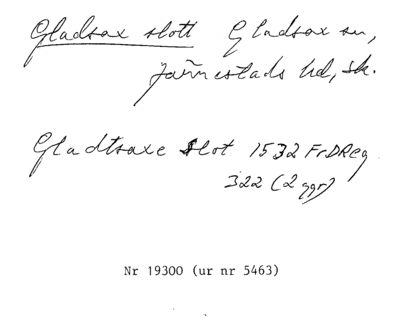 Gladsax slott Gladsax sn,
Järrestads hd, Sk.
Gladtsaxe slot 1532 FrDReg
322 (2 ggr)
Nr 19300 (ur nr 5463)